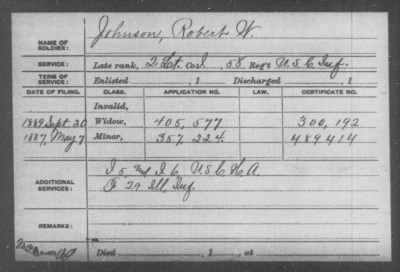 NAME OF SOLDIER: Johnson, Robert W.
SERVICE: Late rank, 2 Lt. Co. I, 58 Reg't U.S.C. Inf.
TERM OF SERVICE: Enlisted , 1 Discharged , 1
DATE OF FILING. CLASS. APPLICATION NO. LAW. CERTIFICATE NO.
Invalid,
1889 Sept. 20 Widow, 405,577 300,192
1887, May 7 Minor, 357,224. 489414
ADDITIONAL SERVICES: I 5, and I 6, U.S.C.H.A.
F 29 Ill. Inf.
REMARKS:
Died , 1 , at